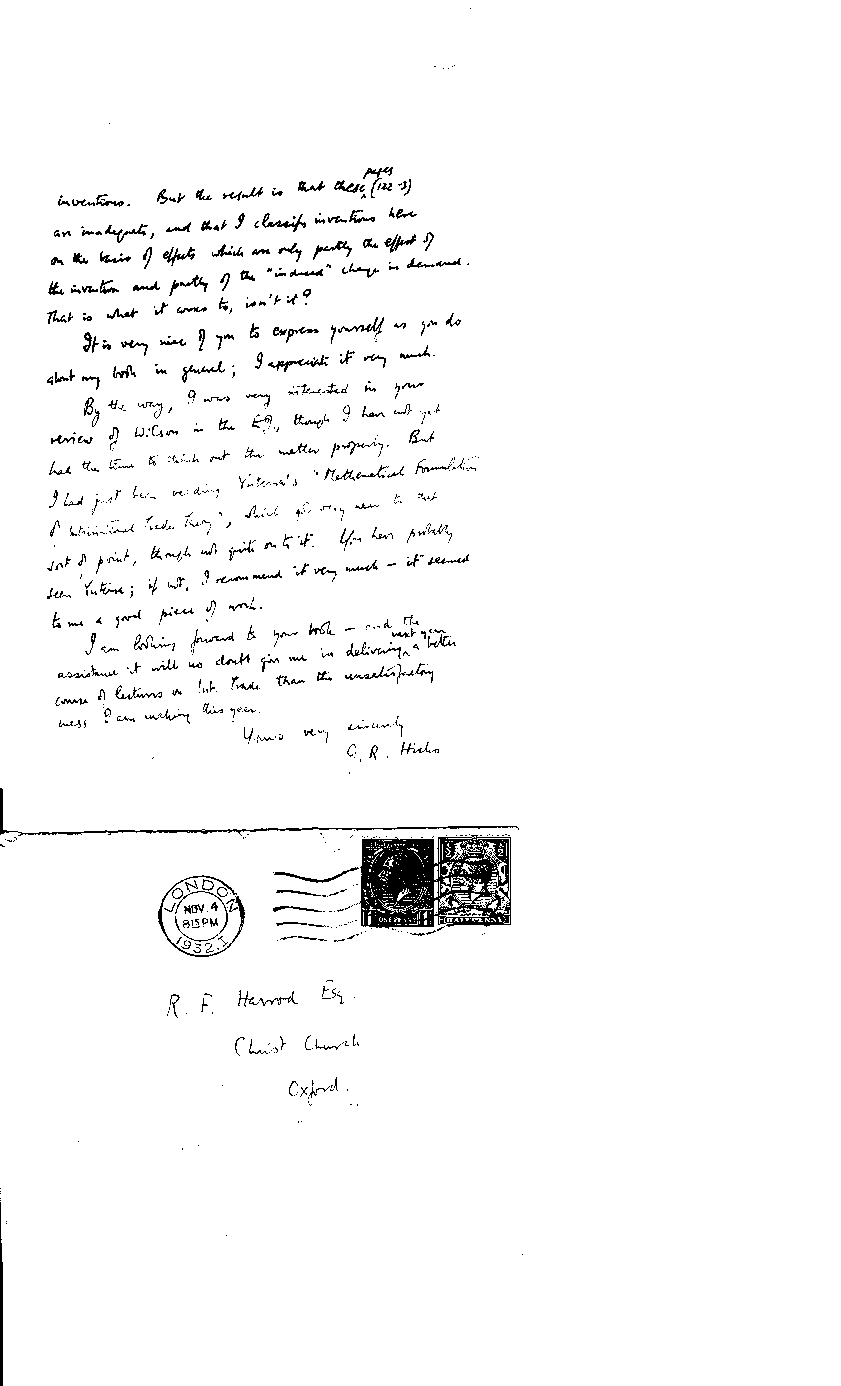 pages
inventions. But the result is that these (122-3)
are inadequate, and that I classify inventions here
on the basis of effects which are only partly the effect of
the invention and partly of the "induced" change in demand.
That is what it comes to, isn't it?
It is very nice of you to express yourself as you do
about my book in general; I appreciate it very much.
By the way, I was very interested in your
review of Wilson in the EJ, though I have not yet
had the time to think out the matter properly. But
I had just been reading Yntema's "Mathematical Foundation
of International Trade Theory", which gets very near to that
sort of point, though not quite on to it. You have probably
seen Yntema; if not, I recommend it very much — it seemed
to me a good piece of work.
I am looking forward to your book — and the
next year
assistance it will no doubt give me in delivering a better
course of lectures on Int. Trade than the unsatisfactory
mess I am making this year.
Yours very sincerely
J. R. Hicks
LONDON
NOV. 4
815 PM
1932
ONE PENNY
HALFPENNY
R. F. Harrod Esq.
Christ Church
Oxford.